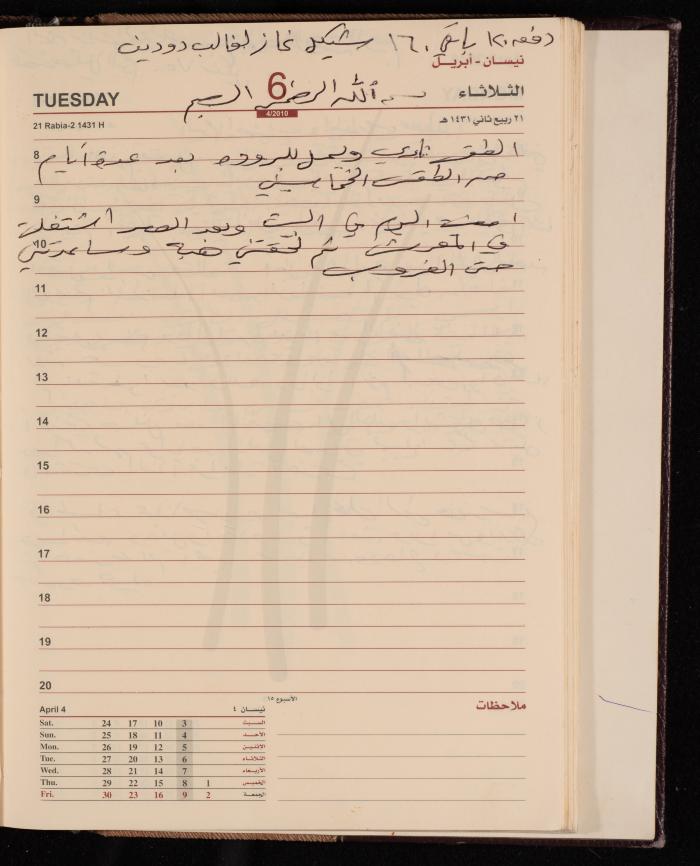 دفعه ١٢٠ باقي ١٦٠ شيكل غاز لغالب دودين
نيسان - أبريل
TUESDAY 6 الثلاثاء
الله الرحمن الرحيم
4/2010
21 Rabia-2 1431 H ٢١ ربيع ثاني ١٤٣١ هـ
8 الطقس ويميل للبرودة بعد عدة أيام
من الطقس الخماسيني
9
اليوم في البيت وبعد العصر اشتغلت
10 في المعرش ثم لحقتني هبة وساعدتني
حتى الغروب
11
12
13
14
15
16
17
18
19
20
الأسبوع ١٥
April 4 نيسان ٤
Sat. 24 17 10 3 السبت
Sun. 25 18 11 4 الأحد
Mon. 26 19 12 5 الاثنين
Tue. 27 20 13 6 الثلاثاء
Wed. 28 21 14 7 الأربعاء
Thu. 29 22 15 8 1 الخميس
Fri. 30 23 16 9 2 الجمعة
ملاحظات